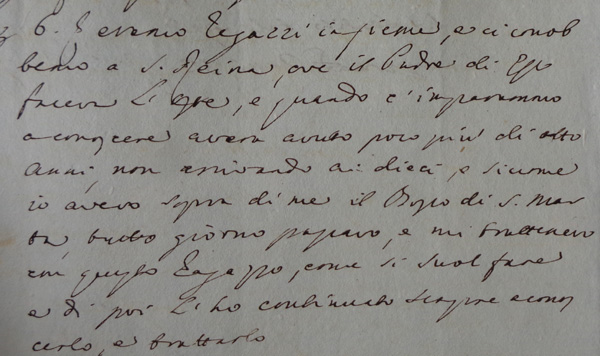 6. Eravamo Ragazzi insieme, e ci conob
bemo a S. Reina, ove il Padre di Esso
faceva
e quando c'imparammo
a conoscere aveva avuto poco più di otto
anni, non arrivando ai dieci, e siccome
io avevo sopra di me il Borgo di S. Mar
ta, tutto giorno passavo, e mi trattenevo
con questo Ragazzo, come si suol fare
e di poi l'ho continuato sempre a conos
cerlo, e trattarlo